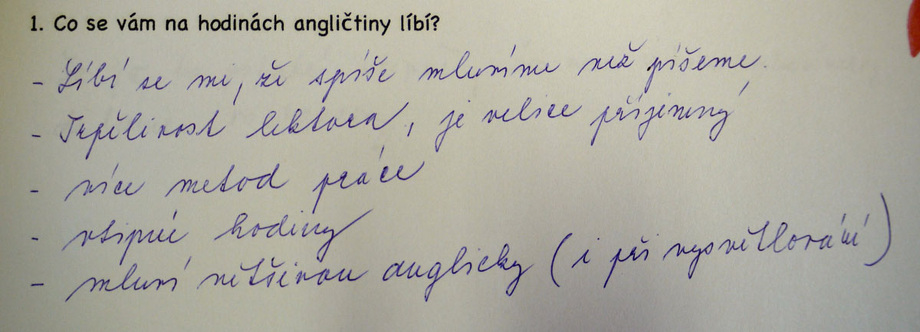 1. Co se vám na hodinách angličtiny líbí?
- Líbí se mi, že spíše mluvíme než píšeme.
- Trpělivost lektora, je velice příjemný
- více metod práce
- vtipné hodiny
- mluví většinou anglicky (i při vysvětlování)